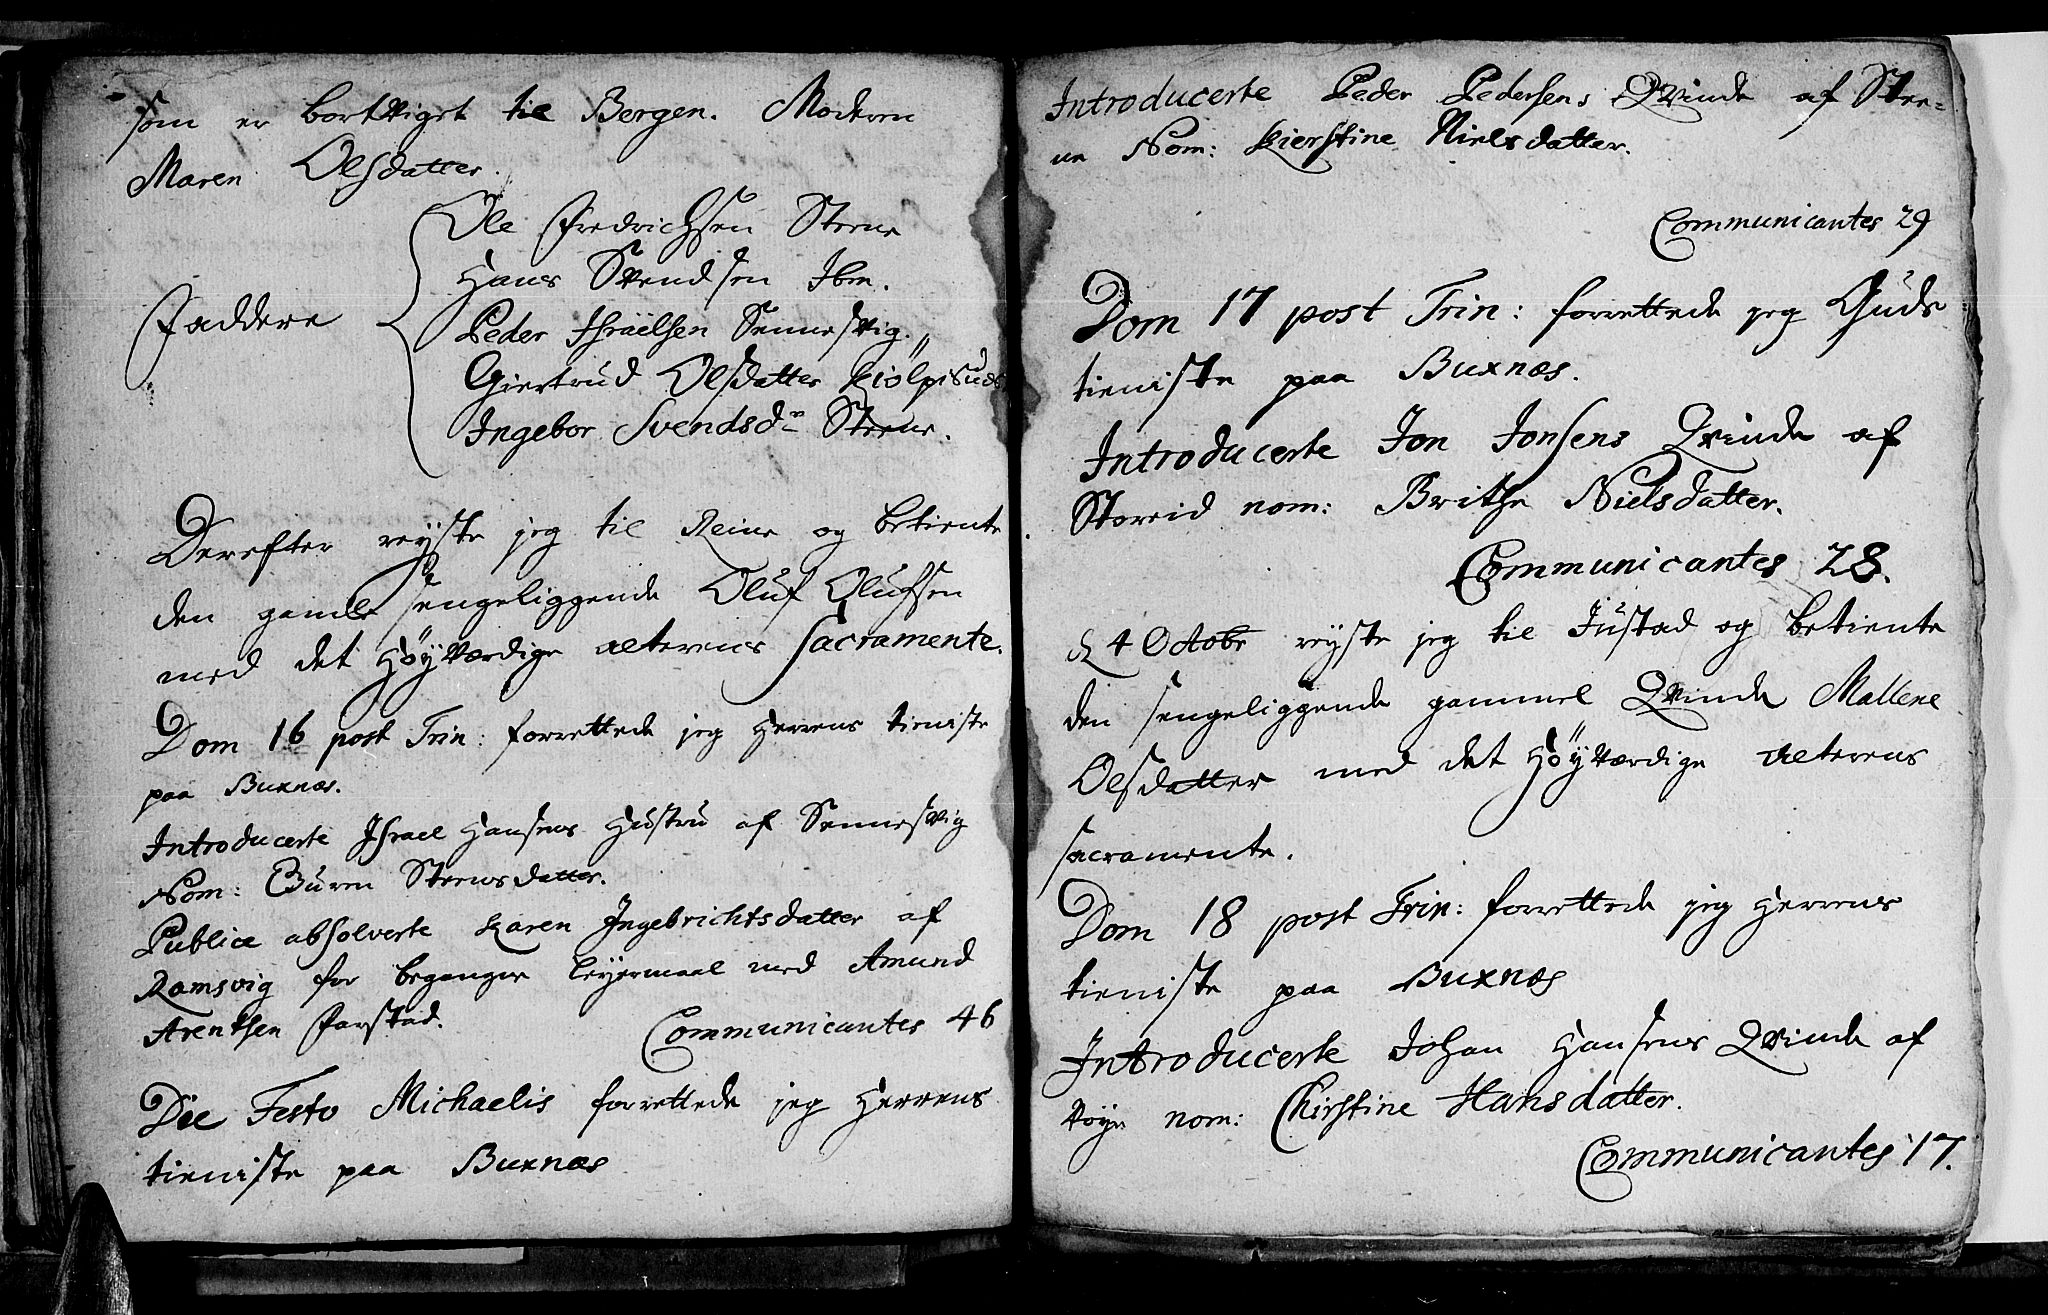 som er bortviget til Bergen. Moderen
Maren Olsdatter.
Faddere
Ole Fredrichsen Steene
Hans Svendsen Ibm.
Peder Israëlsen Sennesvig.
Giertrud Olsdatter Kiölpisnæs
Ingebor Svendsdr Steene.
Derefter reyste jeg til Reine og betiente
den gamle sengeliggende Oluf Olufsen
med det Höyværdige alterens Sacramente.
Dom 16 post Trin: forrettede jeg Herrens tieniste
paa Buxnæs.
Introducerte Israel Hansens Hustru af Sennesvig
Nom: Guren Steensdatter.
Publice absolverte Karen Ingebrichtsdatter af
Ramsvig for begangen leyermaal med Amund
Arentsen Farstad.
Communicantes 46
Die Festo Michaelis forrettede jeg Herrens
tieniste paa Buxnæs
Introducerte Peder Pedersens Qvinde af Stee-
ne Nom: Kierstine Nielsdatter.
Communicantes 29
Dom 17 post Trin: forrettede jeg Guds
tieniste paa Buxnæs.
Introducerte Jon Jonsens Qvinde af
Storeid nom: Brithe Nielsdatter.
Communicantes 28.
d 4 Octobr reyste jeg til Justad og betiente
den sengeliggende gammel Qvinde Mallene
Olsdatter med det Höyværdige alterens
sacramente.
Dom 18 post Trin: forrettede jeg Herrens
tieniste paa Buxnæs
Introducerte Johan Hansens Qvinde af
Vöge nom: Chirstine Hansdatter.
Communicantes 17.